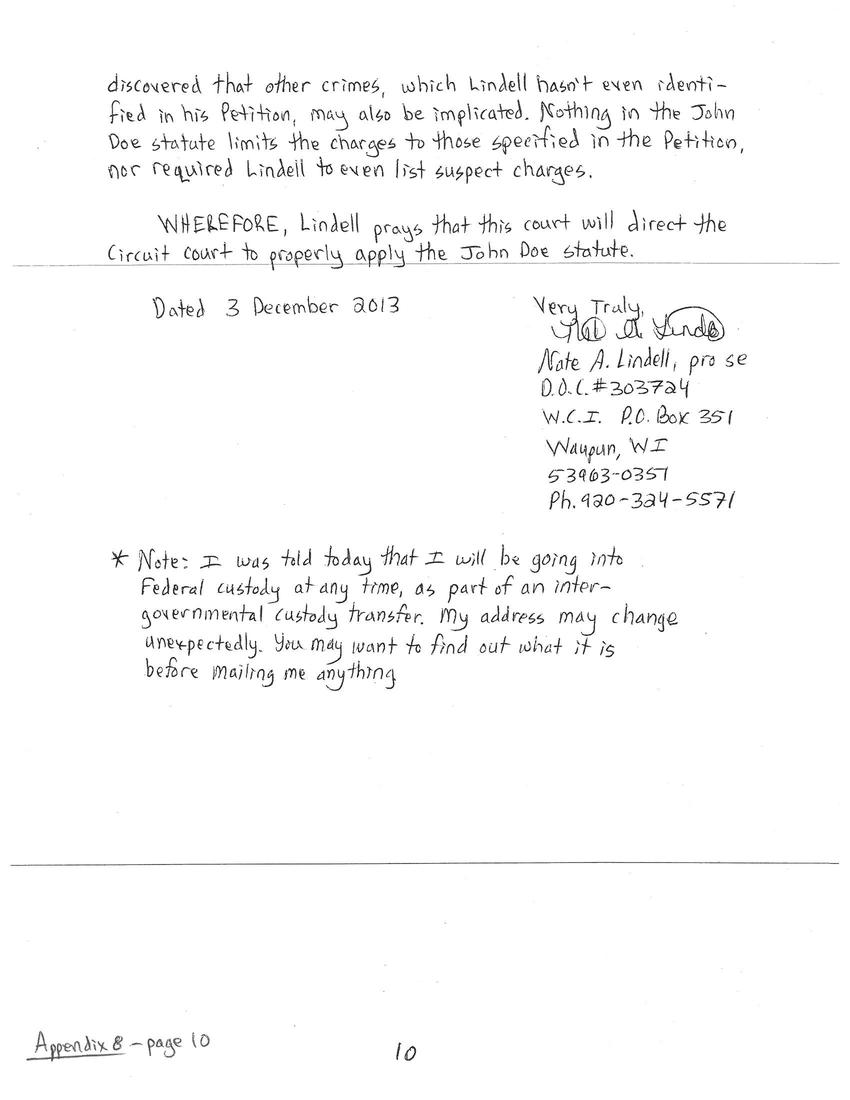 discovered that other crimes, which Lindell hasn't even identi-
fied in his Petition, may also be implicated. Nothing in the John
Doe statute limits the charges to those specified in the Petition,
nor required Lindell to even list suspect charges.
WHEREFORE, Lindell prays that this court will direct the
Circuit court to properly apply the John Doe statute.
Dated 3 December 2013
Very Truly,
Nate A. Lindell, pro se
D.O.C.#303724
W.C.I. P.O. Box 351
Waupun, WI
53963-0351
Ph. 920-324-5571
* Note: I was told today that I will be going into
Federal custody at any time, as part of an inter-
governmental custody transfer. My address may change
unexpectedly. You may want to find out what it is
before mailing me anything
Appendix 8 - page 10
10